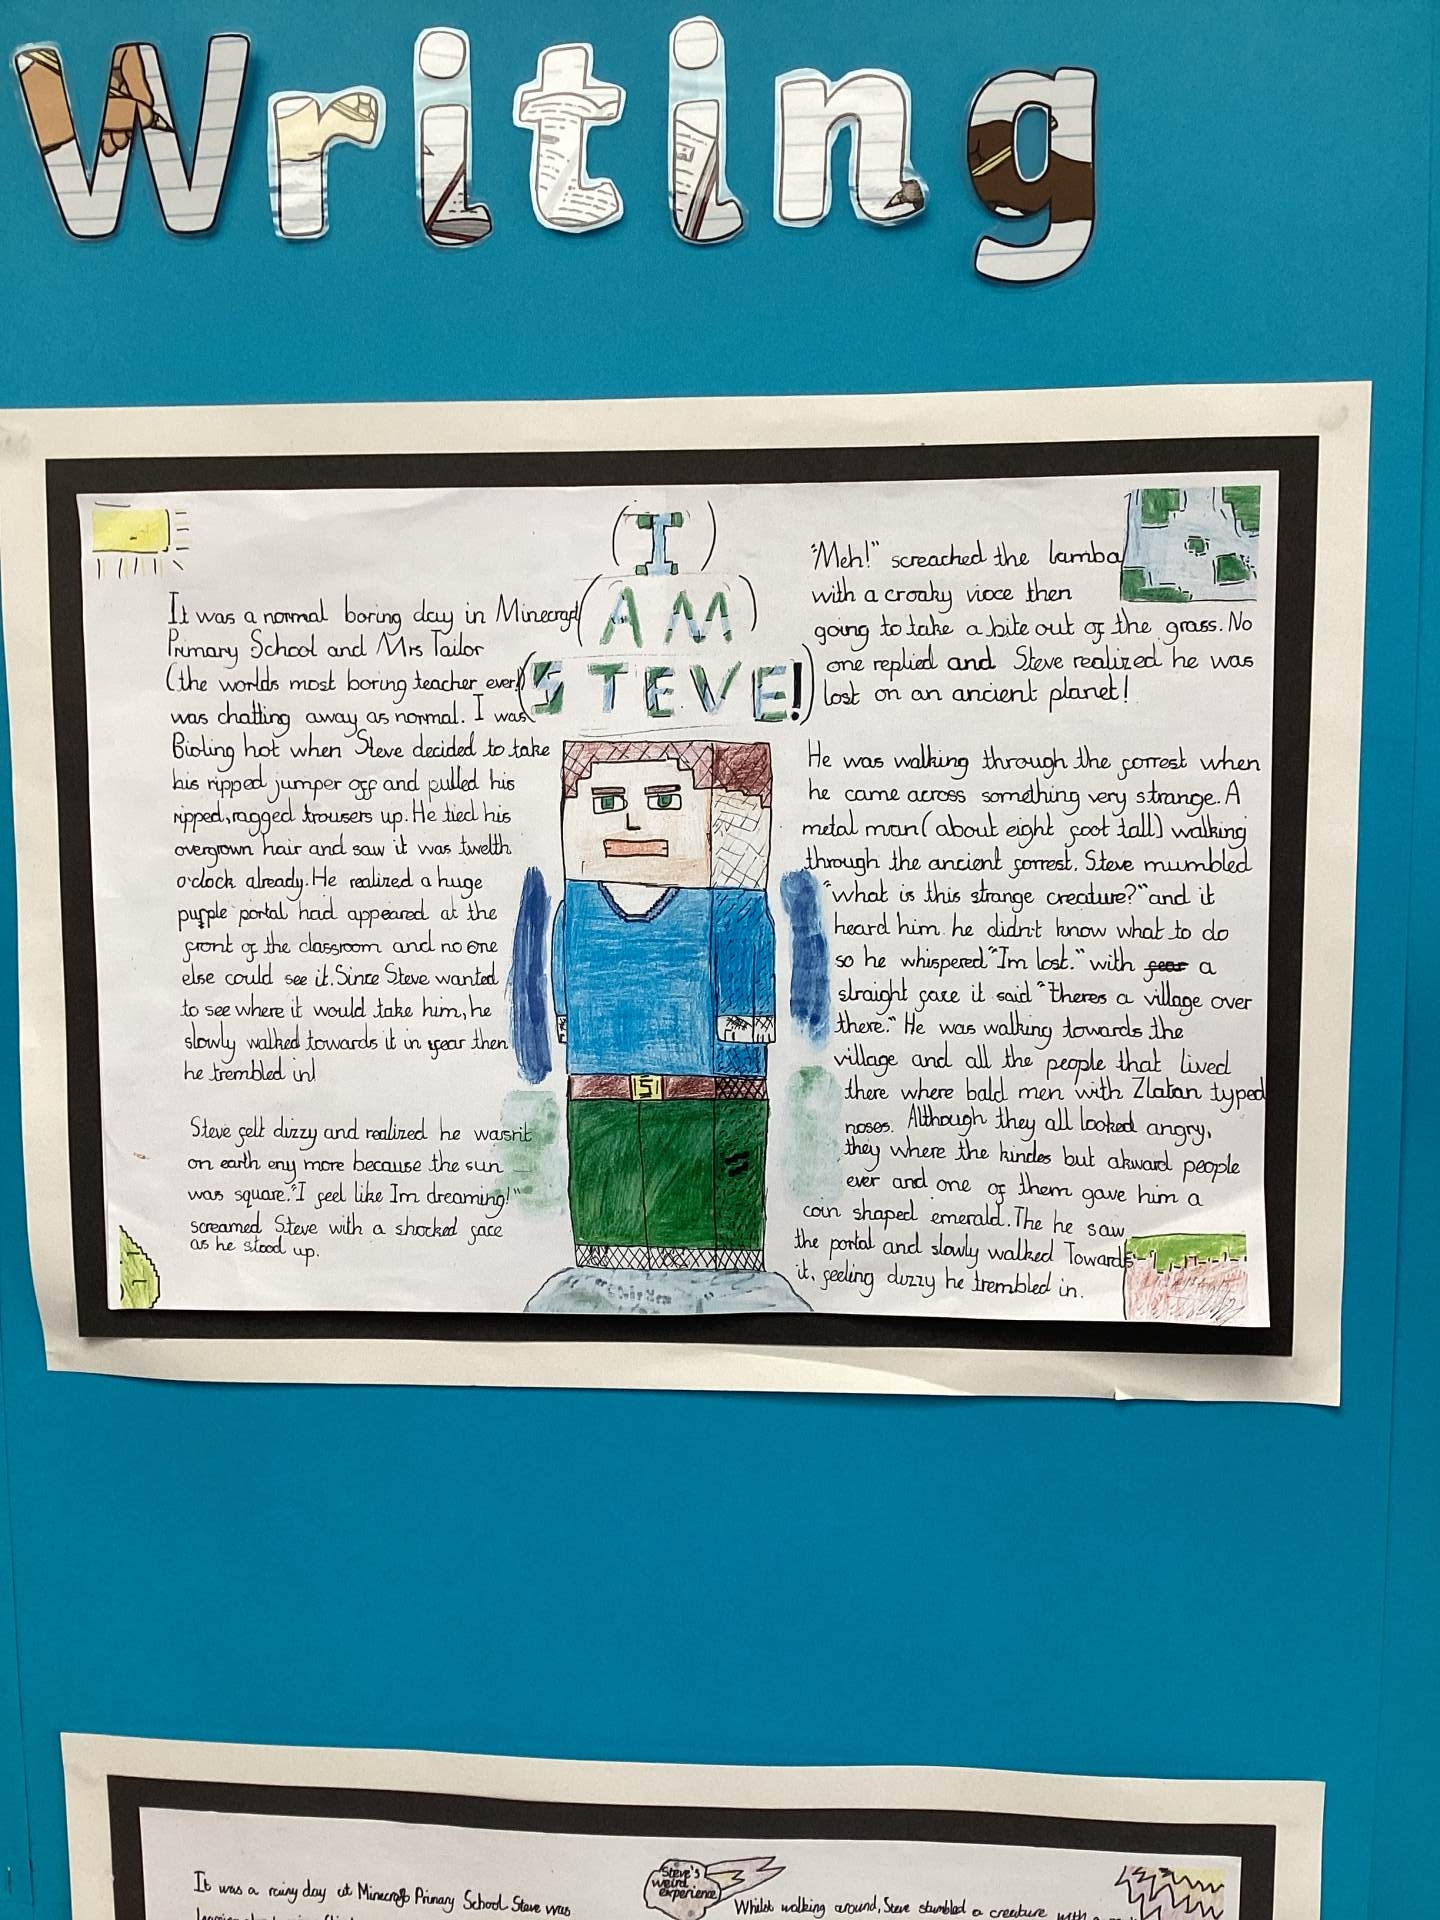 Writing
I
AM
STEVE!
It was a normal boring day in Minecraft
Primary School and Mrs Tailor
(the worlds most boring teacher ever!)
was chatting away as normal. I was
Bioling hot when Steve decided to take
his ripped jumper off and pulled his
ripped, ragged trousers up. He tied his
overgrown hair and saw it was twelth
o'clock already. He realized a huge
purple portal had appeared at the
front of the classroom and no one
else could see it. Since Steve wanted
to see where it would take him, he
slowly walked towards it in fear then
he trembled in!
Steve felt dizzy and realized he wasn't
on earth eny more because the sun
was square. "I feel like Im dreaming!"
screamed Steve with a shocked face
as he stood up.
"Meh!" screached the lamba
with a croaky vioce then
going to take a bite out of the grass. No
one replied and Steve realized he was
lost on an ancient planet!
He was walking through the forrest when
he came across something very strange. A
metal man (about eight foot tall) walking
through the ancient forrest. Steve mumbled
"what is this strange creature?" and it
heard him he didn't know what to do
so he whispered "Im lost." with fear a
straight face it said "theres a village over
there." He was walking towards the
village and all the people that lived
there where bald men with Zlatan typed
noses. Although they all looked angry,
they where the kindes but akward people
ever and one of them gave him a
coin shaped emerald. The he saw
the portal and slowly walked Towards
it, feeling dizzy he trembled in.
S
It was a rainy day at Minecraft Primary School. Steve was
Steve's
weird
experience
Whilst walking around, Steve stumbled a creature with a